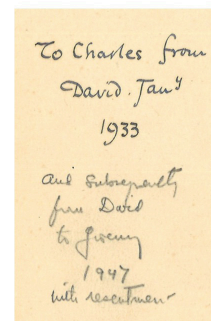 To Charles from
David. Jan y
1933
and subsequently
from David
to
1947
with resentment